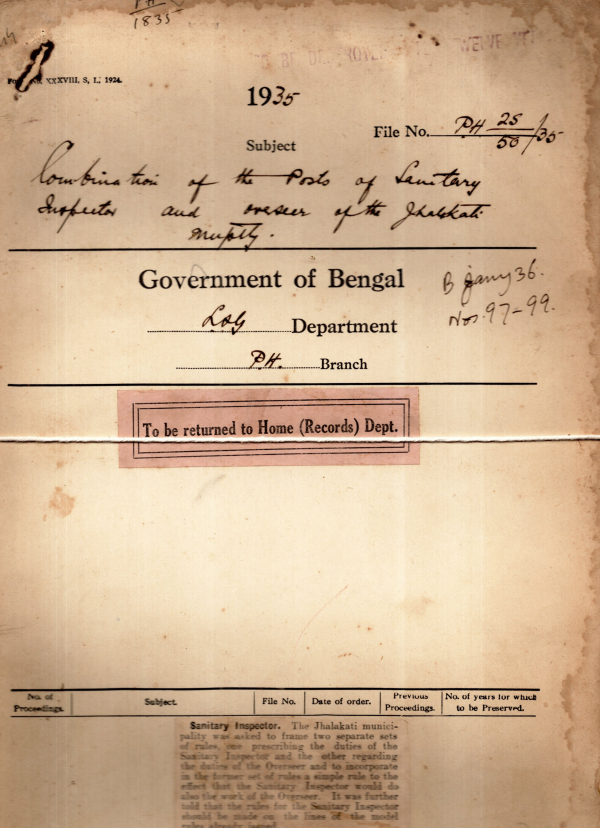 PH
1835
TO BE DESTROYED
XXXVIII, S, I., 1924.
1935
File No. P.H 2S/50/35
Subject
Combination of the Posts of Sanitary
Inspector and overseer of the Jhalakati
Muplty.
Government of Bengal
B Jany 36.
Nos. 97–99.
LSG Department
P.H. Branch
To be returned to Home (Records) Dept.
No. of Proceedings. Subject. File No. Date of order. Previous Proceedings. No. of years for which to be Preserved.
Sanitary Inspector. The Jhalakati munici-
pality was asked to frame two separate sets
of rules, one prescribing the duties of the
Sanitary Inspector and the other regarding
the duties of the Overseer and to incorporate
in the former set of rules a simple rule to the
effect that the Sanitary Inspector would do
also the work of the Overseer. It was further
told that the rules for the Sanitary Inspector
should be made on the lines of the model
rules already issued